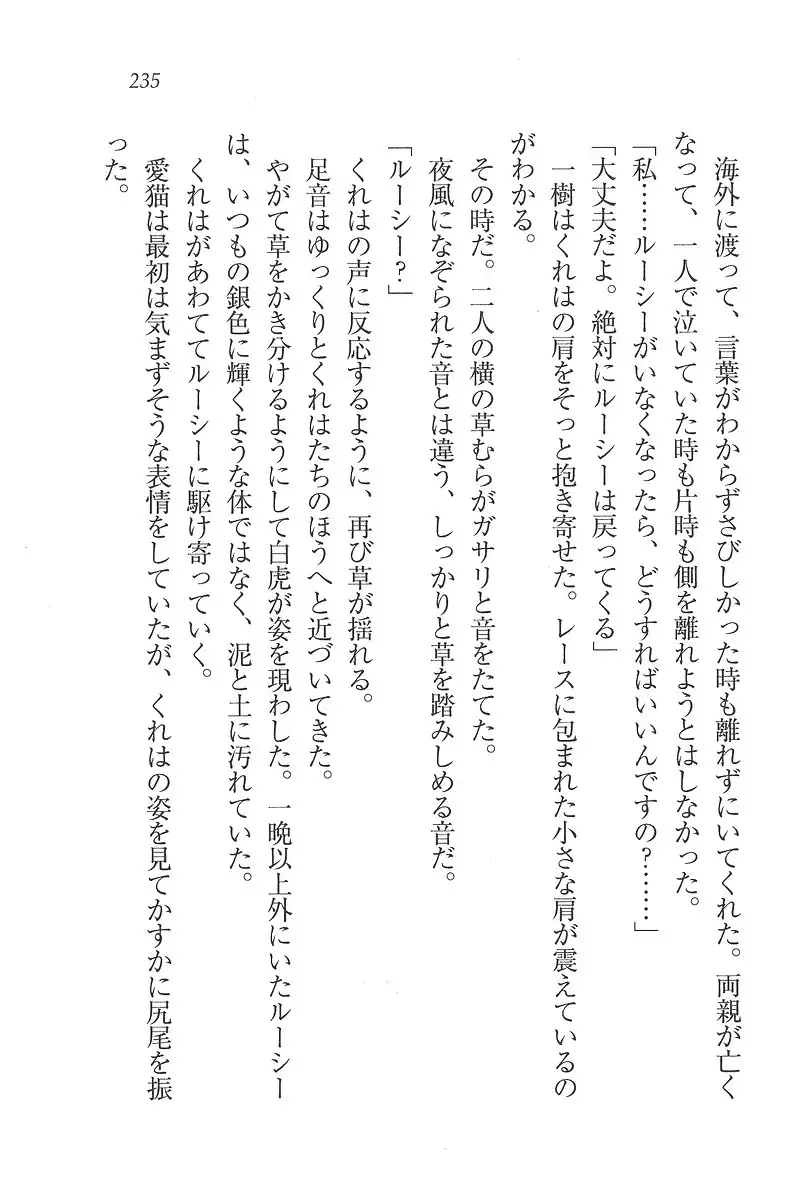 235
海外に渡って、言葉がわからずさびしかった時も離れずにいてくれた。両親が亡く
なって、一人で泣いていた時も片時も側を離れようとはしなかった。
「私……ルーシーがいなくなったら、どうすればいいんですの？……」
「大丈夫だよ。絶対にルーシーは戻ってくる」
一樹はくれはの肩をそっと抱き寄せた。レースに包まれた小さな肩が震えているの
がわかる。
その時だ。二人の横の草むらがガサリと音をたてた。
夜風になぞられた音とは違う、しっかりと草を踏みしめる音だ。
「ルーシー？」
くれはの声に反応するように、再び草が揺れる。
足音はゆっくりとくれはたちのほうへと近づいてきた。
やがて草をかき分けるようにして白虎が姿を現わした。一晩以上外にいたルーシー
は、いつもの銀色に輝くような体ではなく、泥と土に汚れていた。
くれはがあわててルーシーに駆け寄っていく。
愛猫は最初は気まずそうな表情をしていたが、くれはの姿を見てかすかに尻尾を振
った。